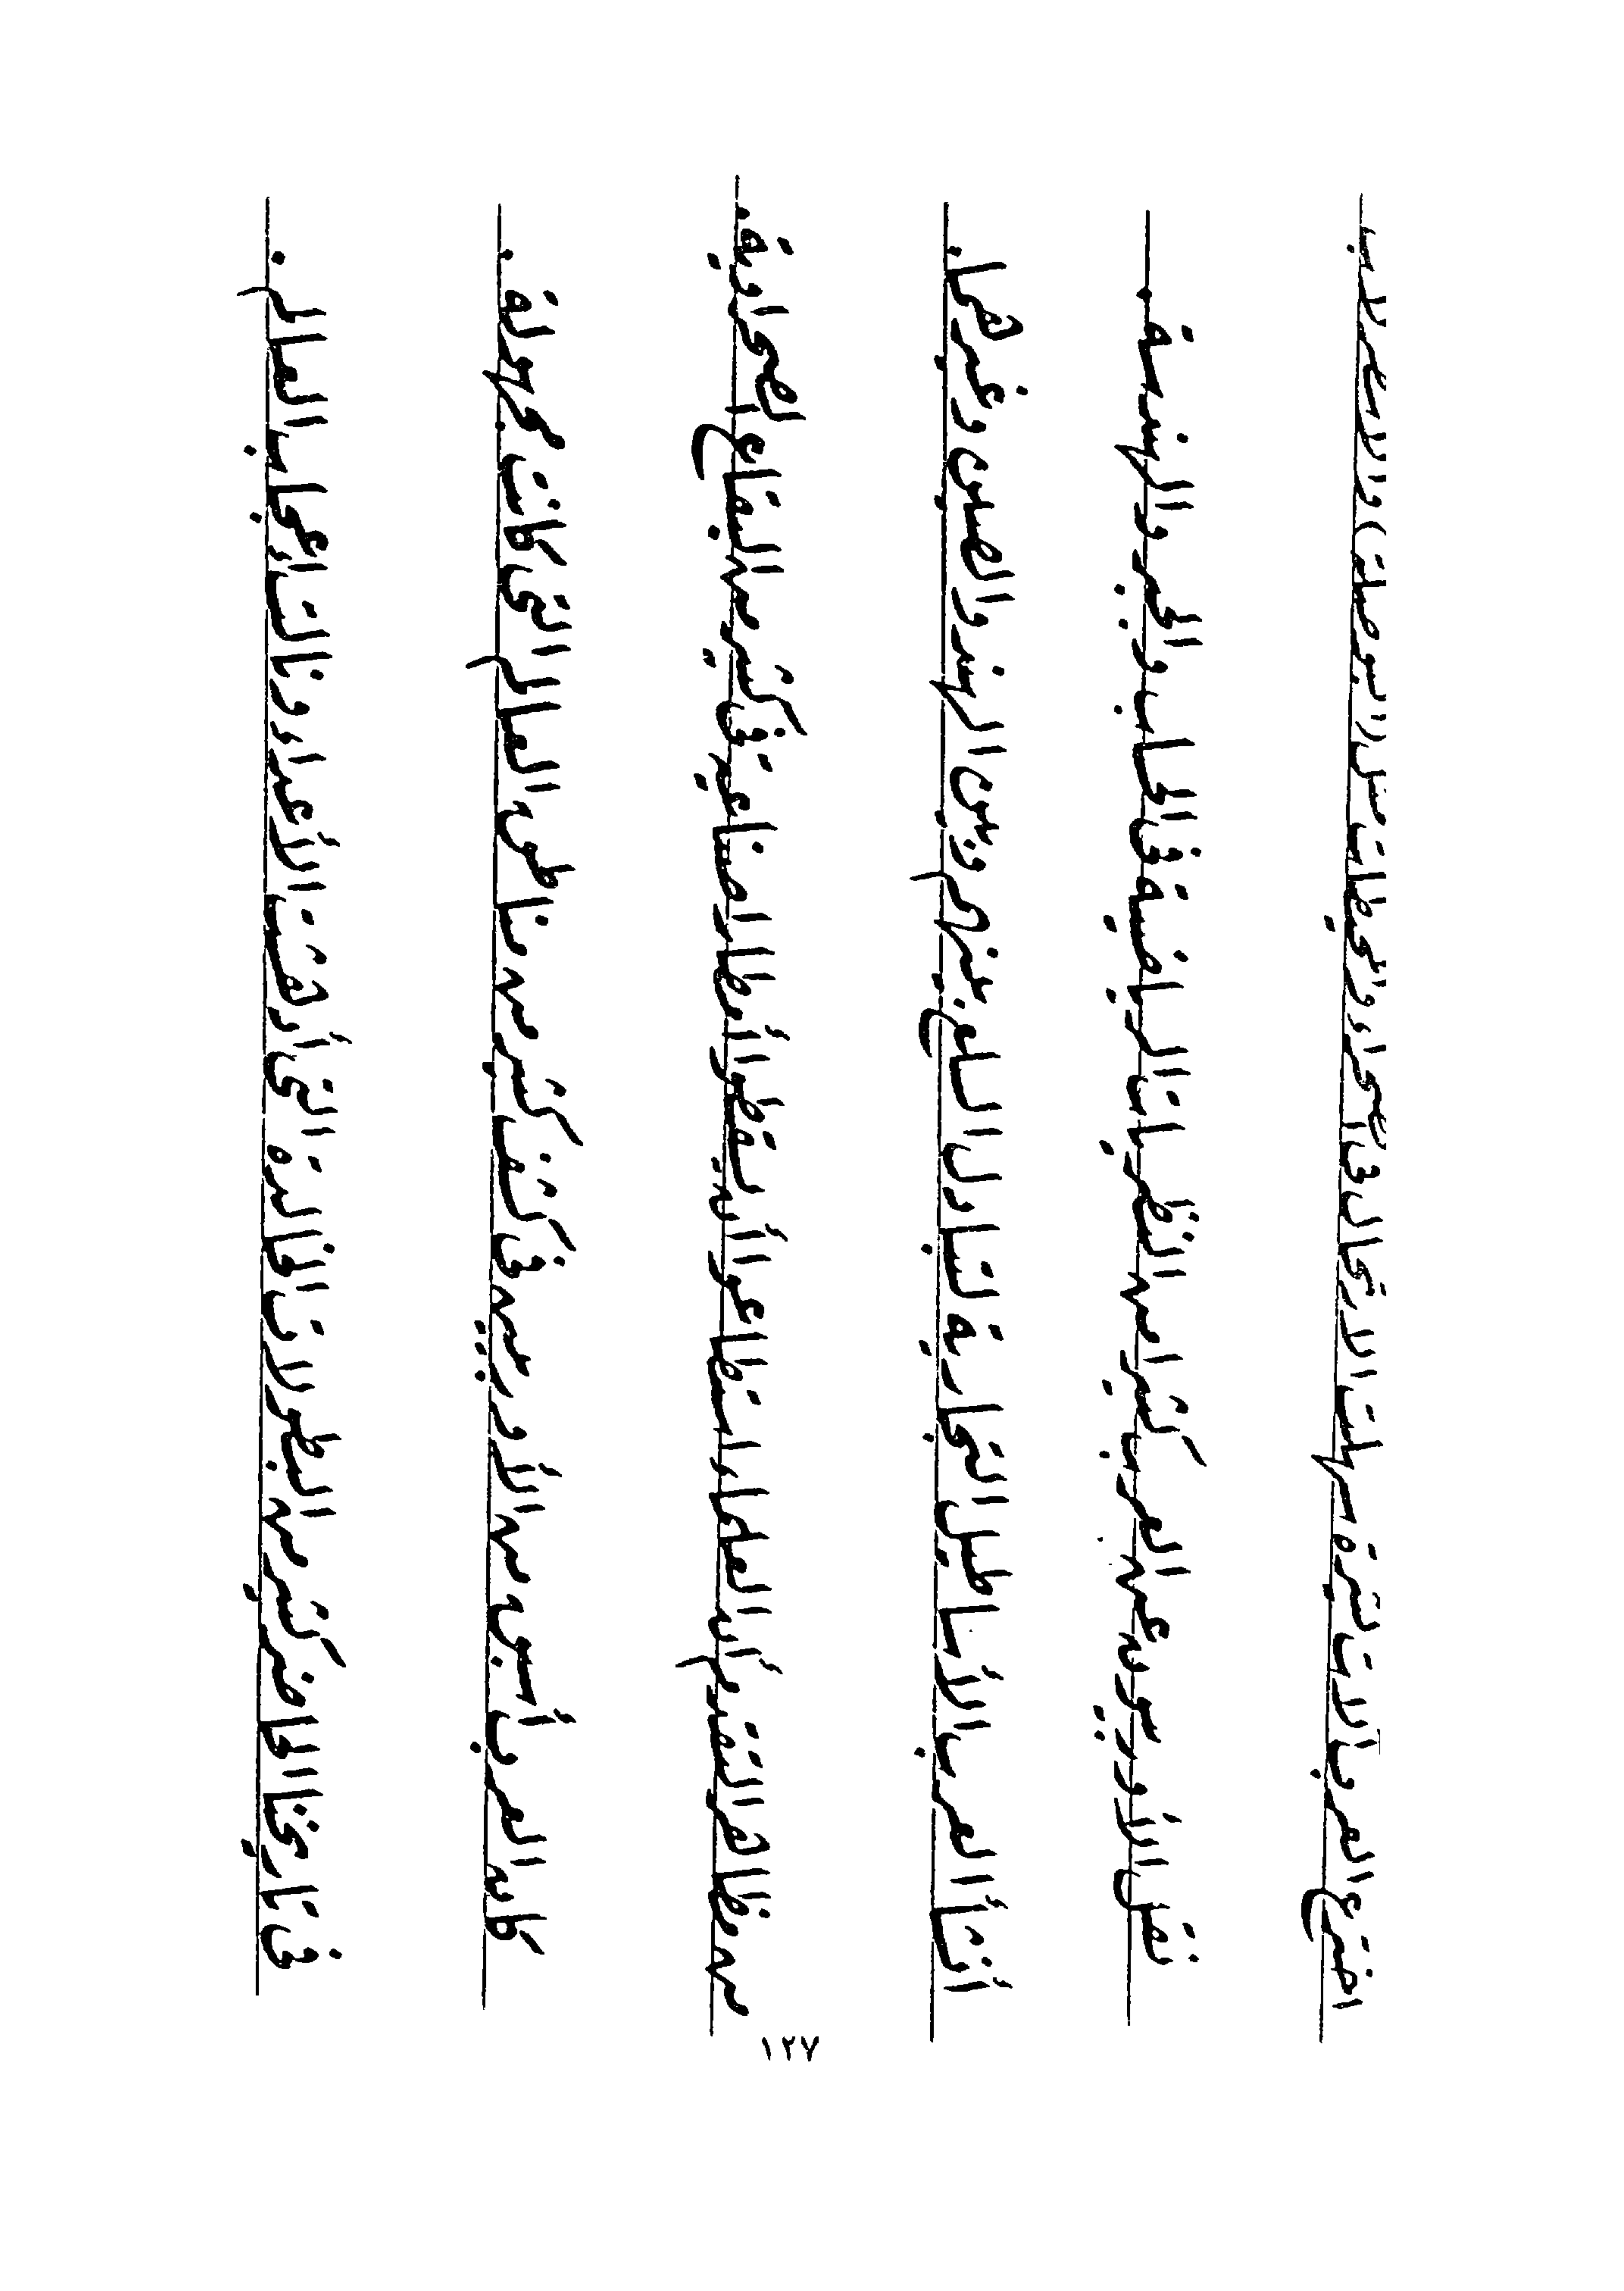 اخترع العرب آلات كثيرة سهلت الارتحال فى الصحراء والمحيطات مثل (البوصلة) والاسطرلاب
نقل الأوربيون عن العرب كثيرا من النظريات الرياضية فى الحساب والجبر والهندسة .
أنشأ العرب الأساطيل التجارية لتبادل السلع بينهم وبين الهند والصين وغيرهما .
من مظاهر التقدم أن العلماء استطاعوا أن يسقطوا أمطارا صناعية فى كثير من البقاع الصحراوية .
كان العرب أسبق من الأوربيين فى كشف كثير من مناطق العالم التى كانت مجهولة .
فى تاريخنا الحاضر كثير من البطولات الخالدة التى أدهشت الأعداء ونالت إعجاب العالم .
١٢٧